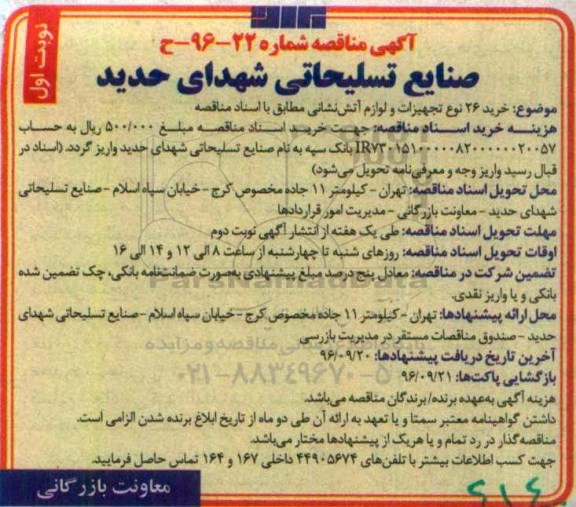 نوبت اول
آگهی مناقصه شماره ۲۲-۹۶-ح
صنایع تسلیحاتی شهدای حدید
موضوع: خرید ۲۶ نوع تجهیزات و لوازم آتش‌نشانی مطابق با اسناد مناقصه
هزینه خرید اسناد مناقصه: جهت خرید اسناد مناقصه مبلغ ۵۰۰/۰۰۰ ریال به حساب
بانک سپه به نام صنایع تسلیحاتی شهدای حدید واریز گردد. (اسناد در
قبال رسید واریز وجه و معرفی‌نامه تحویل می‌شود)
محل تحویل اسناد مناقصه: تهران - کیلومتر ۱۱ جاده مخصوص کرج - خیابان سپاه اسلام - صنایع تسلیحاتی
شهدای حدید - معاونت بازرگانی - مدیریت امور قراردادها
مهلت تحویل اسناد مناقصه: طی یک هفته از انتشار آگهی نوبت دوم
اوقات تحویل اسناد مناقصه: روزهای شنبه تا چهارشنبه از ساعت ۸ الی ۱۲ و ۱۴ الی ۱۶
تضمین شرکت در مناقصه: معادل پنج درصد مبلغ پیشنهادی به‌صورت ضمانتنامه بانکی، چک تضمین شده
بانکی و یا واریز نقدی.
محل ارائه پیشنهادها: تهران - کیلومتر ۱۱ جاده مخصوص کرج - خیابان سپاه اسلام - صنایع تسلیحاتی شهدای
حدید - صندوق مناقصات مستقر در مدیریت بازرسی
آخرین تاریخ دریافت پیشنهادها: ۹۶/۰۹/۲۰
بازگشایی پاکت‌ها: ۹۶/۰۹/۲۱
هزینه آگهی به‌عهده برنده/برندگان مناقصه می‌باشد.
داشتن گواهینامه معتبر سمتا و یا تعهد به ارائه آن طی دو ماه از تاریخ ابلاغ برنده شدن الزامی است.
مناقصه‌گذار در رد تمام و یا هریک از پیشنهادها مختار می‌باشد.
جهت کسب اطلاعات بیشتر با تلفن‌های ۴۴۹۰۵۶۷۴ داخلی ۱۶۷ و ۱۶۴ تماس حاصل فرمایید.
معاونت بازرگانی
ParsNamadData
۰۲۱-۸۸۳۴۹۶۷۰-۵